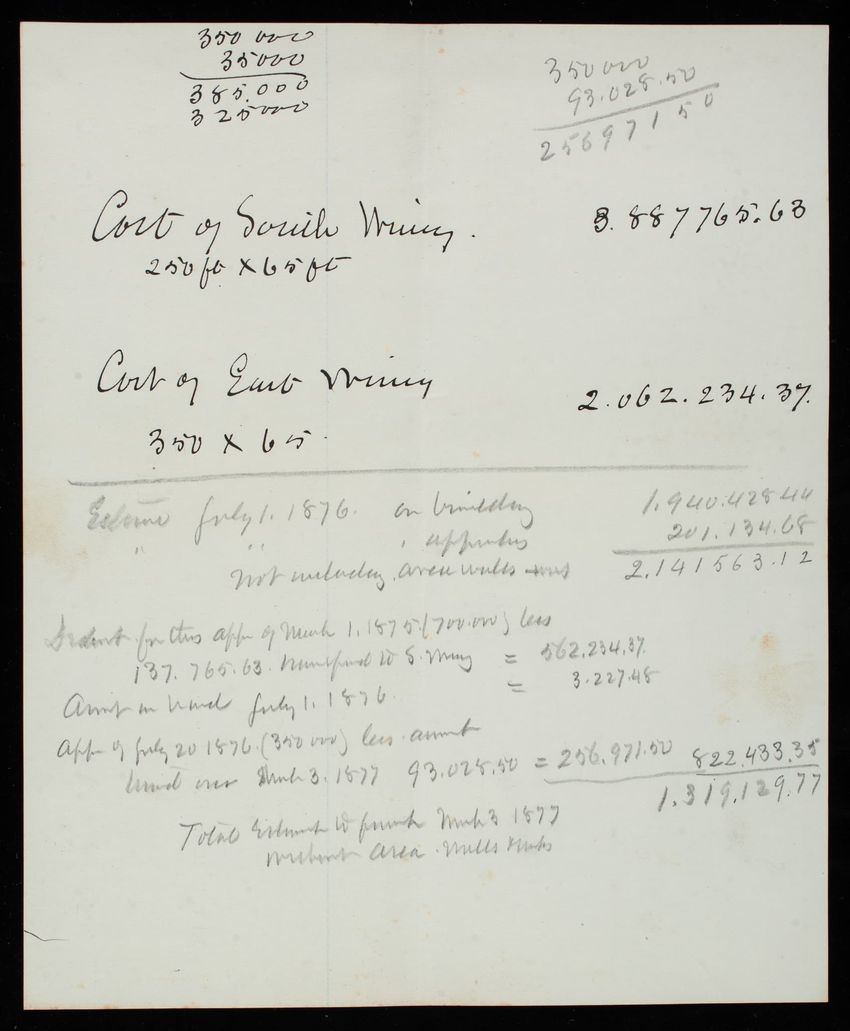 350 000
35000
385.000
325000
350000
93.028.50
25697150
Cost of South Wing. 3.887765.63
250ft x 65ft
Cost of East Wing 2.062.234.37.
350 x 65.
Estime July 1. 1876. on building 1.940.428.44
" " " apparatus 201.134.68
Not including area walls 2.141563.12
Deduct for this appn of March 1. 1875. (700.000) less
137.765.63. transferred to S. Wing = 562.234.37.
Amt on hand July 1. 1876. = 3.227.48
Appn of July 20 1876. (350000) less amount
used over March 3. 1877 93.028.50 = 256.971.50 822.433.35
1.319.129.77
Total Estimate to finish March 3 1877
without area walls